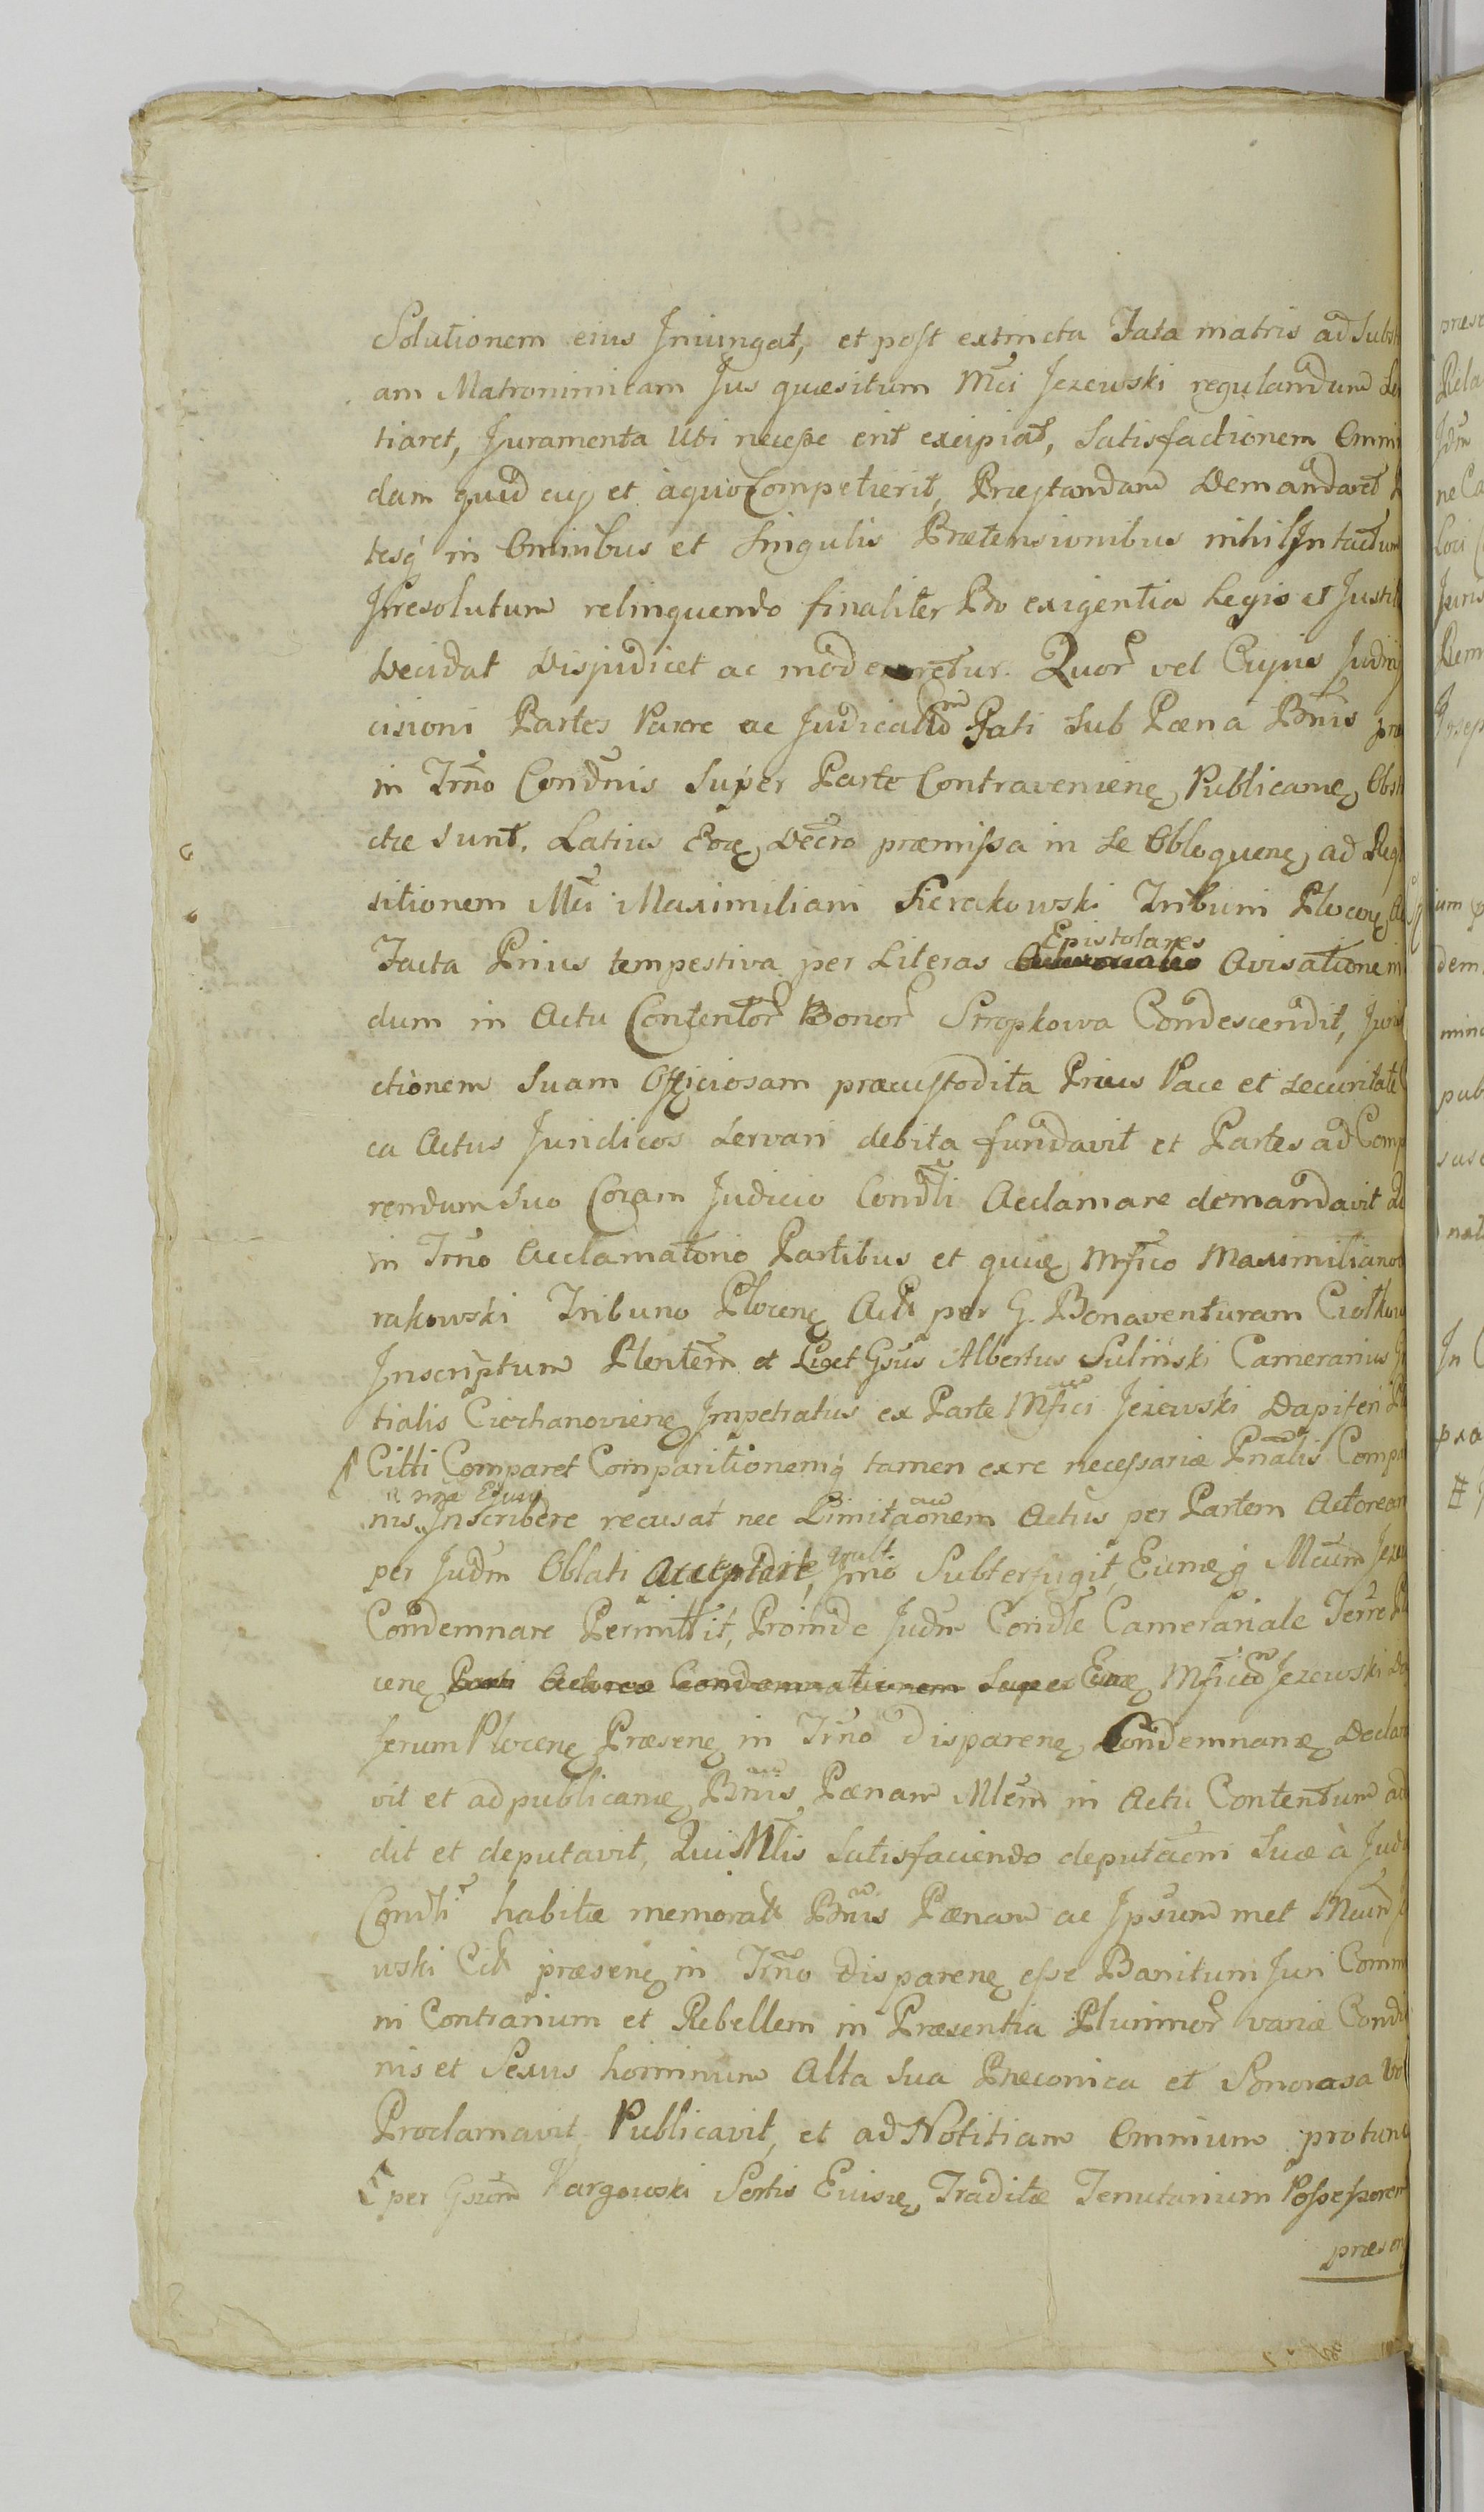 Solutionem eius Iniungat, et post extincta Fata matris ad Subst
am Matronimicam Jus quæsitum Mci Jezewski regulandum
tiaret, Juramenta Ubi necesse erit excipiat, Satisfactionem Omni
dam quid cuj et àquo Competierit, Præstandam Demandaret
tesq in Omnibus et Singulis Prætensionibus nihil Intactum
Irresolutum relinquendo finaliter Pro exigentia Legis et Justit
Decidat Disjudicet ac moderetur. Quor vel Cujus Judicij
cisioni Partes Parere ac Judicatum Pati sub Pæna Bnis præ
in Trno Condnis Super Parte Contravenienę Publicamę Obst
ctæ sunt. Latius Eorę Decro præmissa in se Obloquenę ad Requi
sitionem Mci Maximiliani Sierakowski Tribuni Plocenę
Facta Prius tempestiva per Literas Epistolares Avisatione in
dum in Actu Contentor Bonor Stropkowa Condescendit, Juris
ctionem Suam Officiosam præcustodita Prius Pace et securitate
ca Actus Juridicos servari debita fundavit et Partes ad Comp
rendum suo Coram Judicio Condli Acclamare demandavit
in Trno Acclamatorio Partibus et quidę Mfico Maximiliano
rakowski Tribuno Plocenę Actt per G. Bonaventuram Ciolkow
Inscriptum Plentem et Licet Gsus Albertus Sulinski Camerarius
tialis Ciechanovienę Impetratus ex Parte Mfici Jezewski Dapiferi
Citti Comparet Comparitionemq tamen exre necessariæ Pnalis Compa
nis Inscribere recusat nec Limitaonem Actus per Partem Actorean
per Judm Oblati Acceptare vult, Imo Subterfugit, Eumdę Mcum Jeze
Condemnare Permittit, Proinde Judm Condle Camerariale Terre
cenę Parti Actoreæ Condemnationem super Eundę Mficum Jezewski
ferum Plocenę Præsenę in Trno disparenę Condemnanę Declara
vit et ad publicamę Bnis Pænam Mlem in Actu Contentum ad
dit et deputavit, Qui Mlis Satisfaciendo deputaoni suæ à Judo
Condli habitæ memoratt Bnis Pænam ac Ipsum met Mcum
wski Citt præsenę in Trno disparenę esse Banitum Juri Comm
ni Contrarium et Rebellem in Præsentia Plurimor variæ Condi
nis et Sexus hominum Alta sua Præconica et Sonorosa Vo
Proclamavit Publicavit, et ad Notitiam Omnium
per Gsum Vargowski Sortis Traditæ Tenutarium Possessorem
præsen